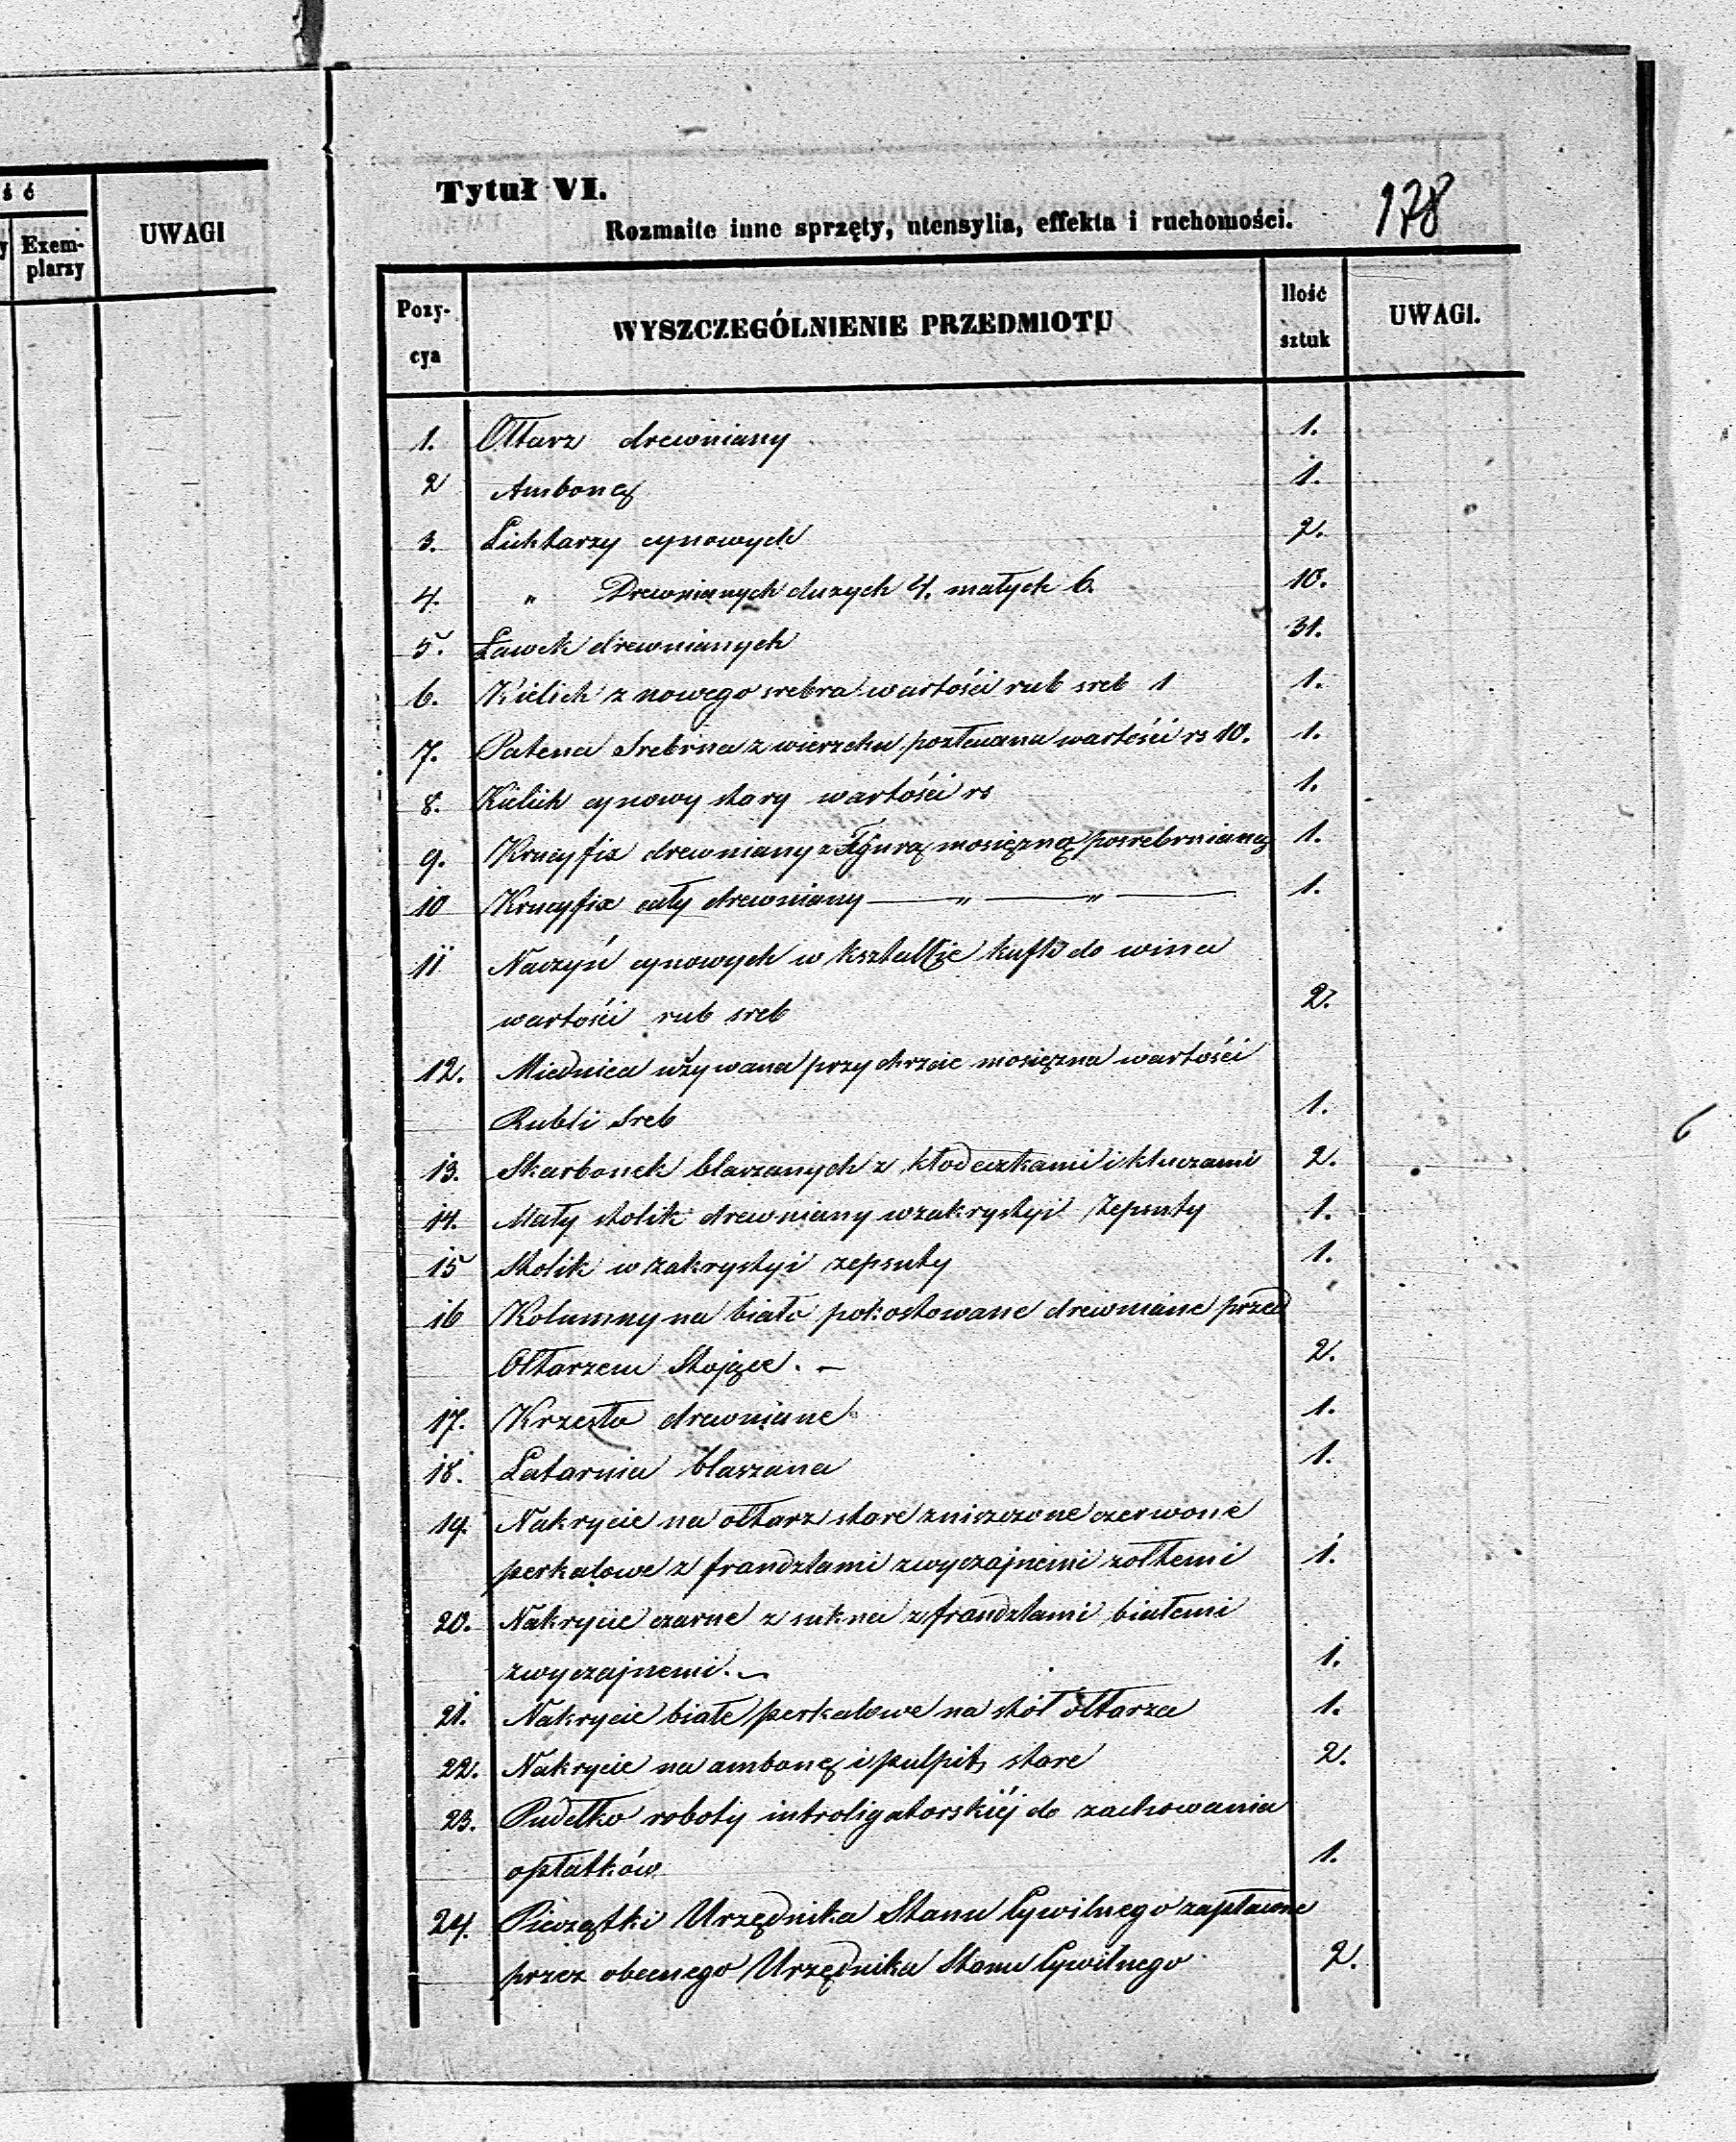 ś ć
y Exem-
plarzy
UWAGI
Tytuł VI.
178
Rozmaite inne sprzęty, utensylia, effekta i ruchomości.
Pozy-
cya
WYSZCZEGÓLNIENIE PRZEDMIOTU
Ilość
sztuk
UWAGI.
1. Ołtarz drewniany 1.
2 Ambonę 1.
3. Lichtarzy cynowych 2.
4. " Drewnianych dużych 4. małych 6. 10.
5. Ławek drewnianych 31.
6. Kielich z nowego srebra wartości rub sreb 1 1.
7. Patena Srebrna z wierzchu pozłacana wartości rs 10. 1.
8. Kielich cynowy stary wartości rs 1.
9. Krucyfix drewniany z Figurą mosiężną posrebrnianą 1.
10 Krucyfix cały drewniany — " — " — 1.
11 Naczyń cynowych w kształcie kufli do wina
wartości rub sreb 2.
12. Miednica używana przy chrzcie mosiężna wartości
Rubli Sreb 1.
13. Skarbonek blaszanych z kłodeczkami i kluczami 2.
14. Mały stolik drewniany w zakrystyi zepsuty 1.
15 Stolik w zakrystyi zepsuty 1.
16 Kolumny na biało pokostowane drewniane przed
Ołtarzem Stojące. — 2.
17. Krzesło drewniane 1.
18. Latarnia blaszana 1.
19. Nakrycie na ołtarz stare zniszczone czerwone
perkalowe z frandzlami zwyczajnemi zołtemi 1.
20. Nakrycie czarne z sukna z frandzlami białemi
zwyczajnemi. — 1.
21. Nakrycie białe perkalowe na stół ołtarza 1.
22. Nakrycie na ambonę i pulpit stare 2.
23. Pudełko roboty introligatorskiéj do zachowania
opłatków 1.
24. Pieczątki Urzędnika Stanu Cywilnego zapłacone
przez obecnego Urzędnika Stanu Cywilnego 2.